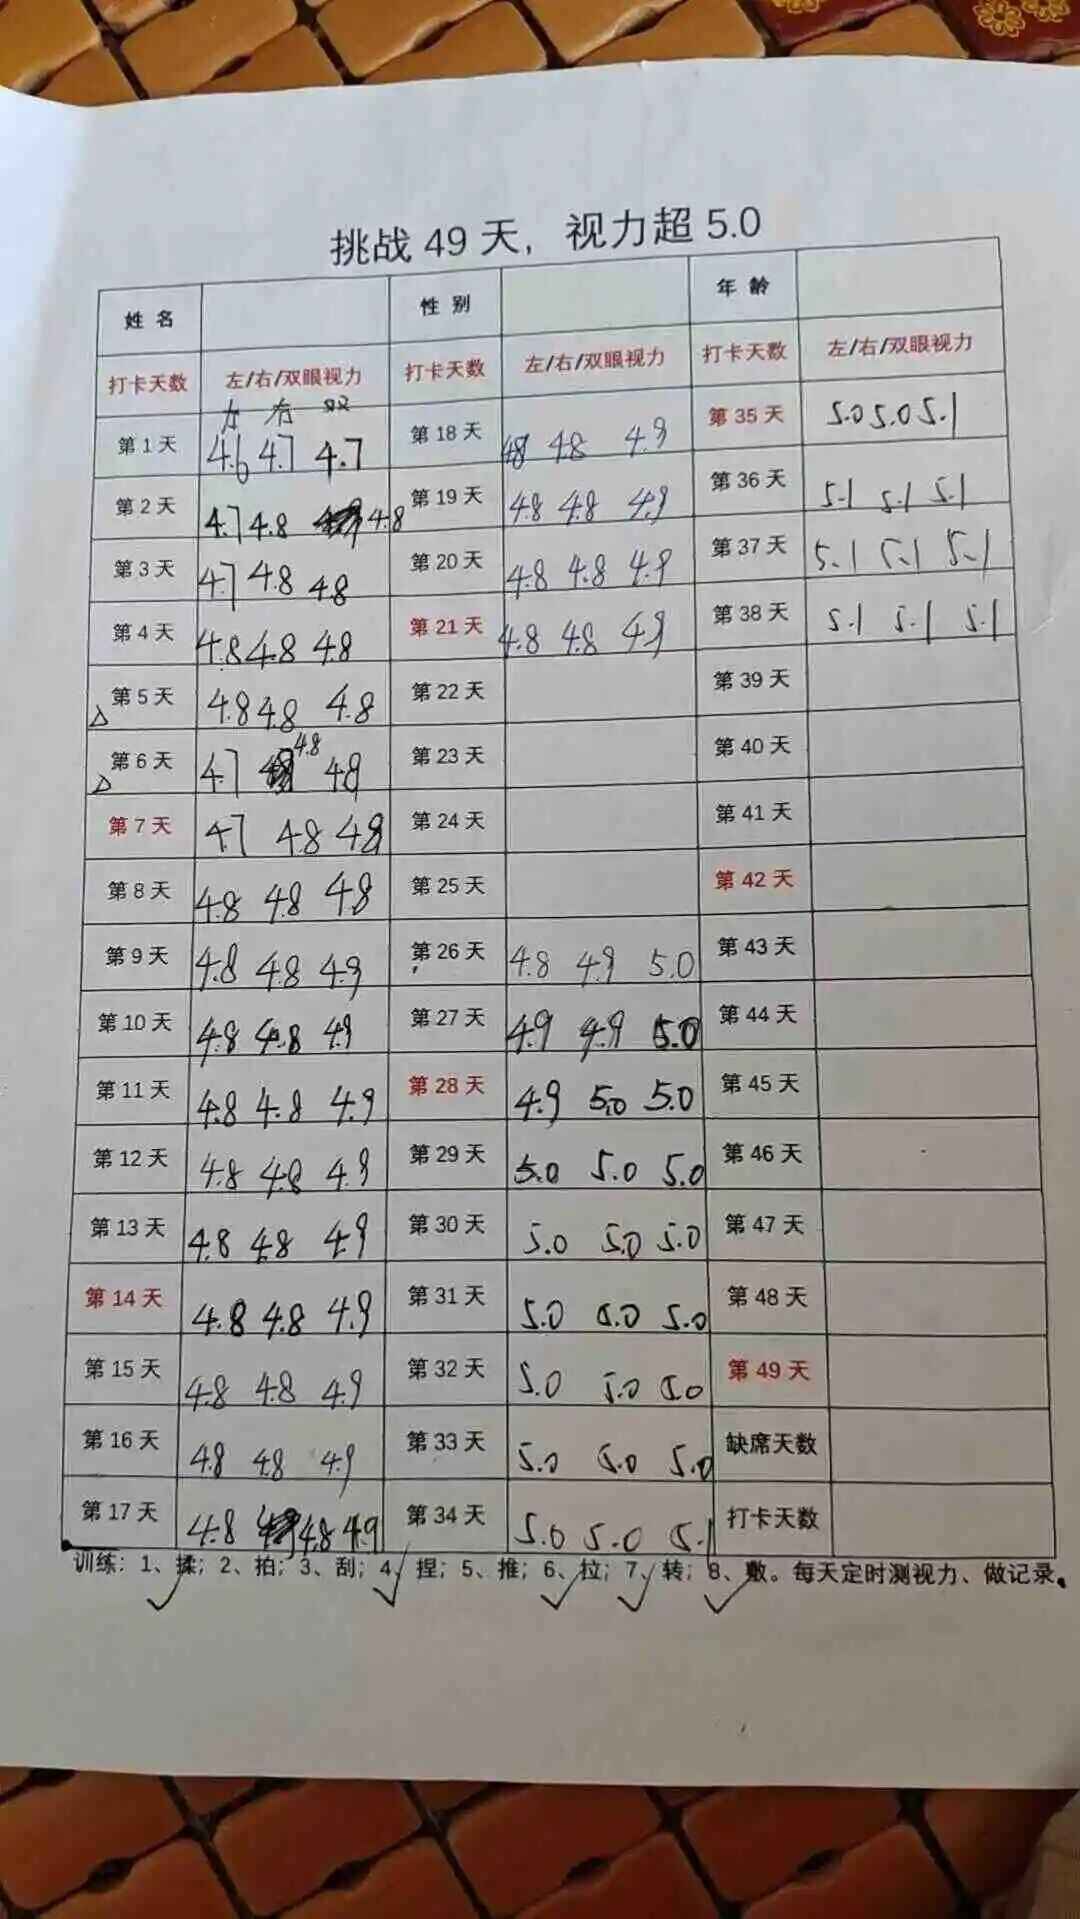 挑战 49 天，视力超 5.0
姓 名 性 别 年 龄
打卡天数 左/右/双眼视力 打卡天数 左/右/双眼视力 打卡天数 左/右/双眼视力
左 右 双
第 1 天 4.6 4.7 4.7 第 18 天 4.8 4.8 4.9 第 35 天 5.0 5.0 5.1
第 2 天 4.7 4.8 4.8 第 19 天 4.8 4.8 4.9 第 36 天 5.1 5.1 5.1
第 3 天 4.7 4.8 4.8 第 20 天 4.8 4.8 4.9 第 37 天 5.1 5.1 5.1
第 4 天 4.8 4.8 4.8 第 21 天 4.8 4.8 4.9 第 38 天 5.1 5.1 5.1
第 5 天 4.8 4.8 4.8 第 22 天 第 39 天
第 6 天 4.7 4.8 4.8 第 23 天 第 40 天
第 7 天 4.7 4.8 4.8 第 24 天 第 41 天
第 8 天 4.8 4.8 4.8 第 25 天 第 42 天
第 9 天 4.8 4.8 4.9 第 26 天 4.8 4.9 5.0 第 43 天
第 10 天 4.8 4.8 4.9 第 27 天 4.9 4.9 5.0 第 44 天
第 11 天 4.8 4.8 4.9 第 28 天 4.9 5.0 5.0 第 45 天
第 12 天 4.8 4.8 4.9 第 29 天 5.0 5.0 5.0 第 46 天
第 13 天 4.8 4.8 4.9 第 30 天 5.0 5.0 5.0 第 47 天
第 14 天 4.8 4.8 4.9 第 31 天 5.0 5.0 5.0 第 48 天
第 15 天 4.8 4.8 4.9 第 32 天 5.0 5.0 5.0 第 49 天
第 16 天 4.8 4.8 4.9 第 33 天 5.0 5.0 5.0 缺席天数
第 17 天 4.8 4.8 4.9 第 34 天 5.0 5.0 5.1 打卡天数
训练：1、揉；2、拍；3、刮；4、捏；5、推；6、拉；7、转；8、敷。每天定时测视力、做记录。